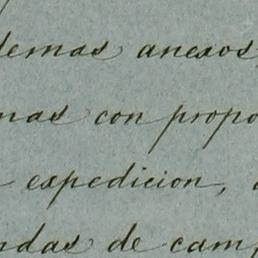 demas anexos,
mas con propo
expedicion,
ndas de cam